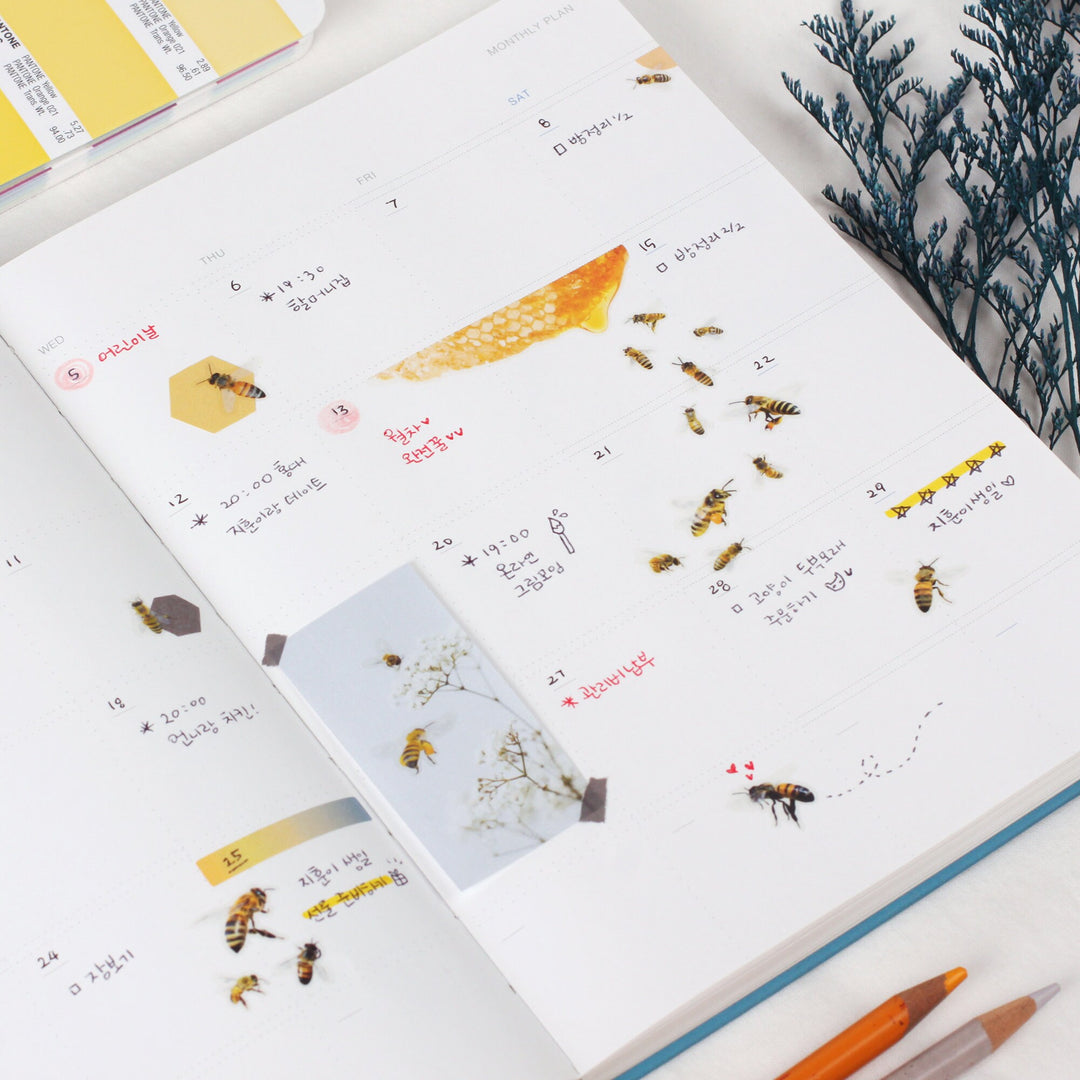 PANTONE
PANTONE Yellow 5.27
PANTONE Orange 021 .73
PANTONE Trans. Wt. 94.00
PANTONE Yellow 2.89
PANTONE Orange 021 .61
PANTONE Trans. Wt. 96.50
MONTHLY PLAN
WED
THU
FRI
SAT
5 어린이날
6
*19:30
할머니집
7
8
□ 방정리 1/2
11
12
* 20:00 홍대
지훈이랑 데이트
13
월차♥
완전꿀♥♥
15
□ 방정리 2/2
18
* 20:00
언니랑 치킨!
20
* 19:00
온라인
그림모임
21
22
24
□ 장보기
25
지훈이 생일
선물 준비하기
27
* 관리비 납부
28
□ 고양이 두부모래
주문하기
29
☆☆☆☆☆
지훈이생일♡